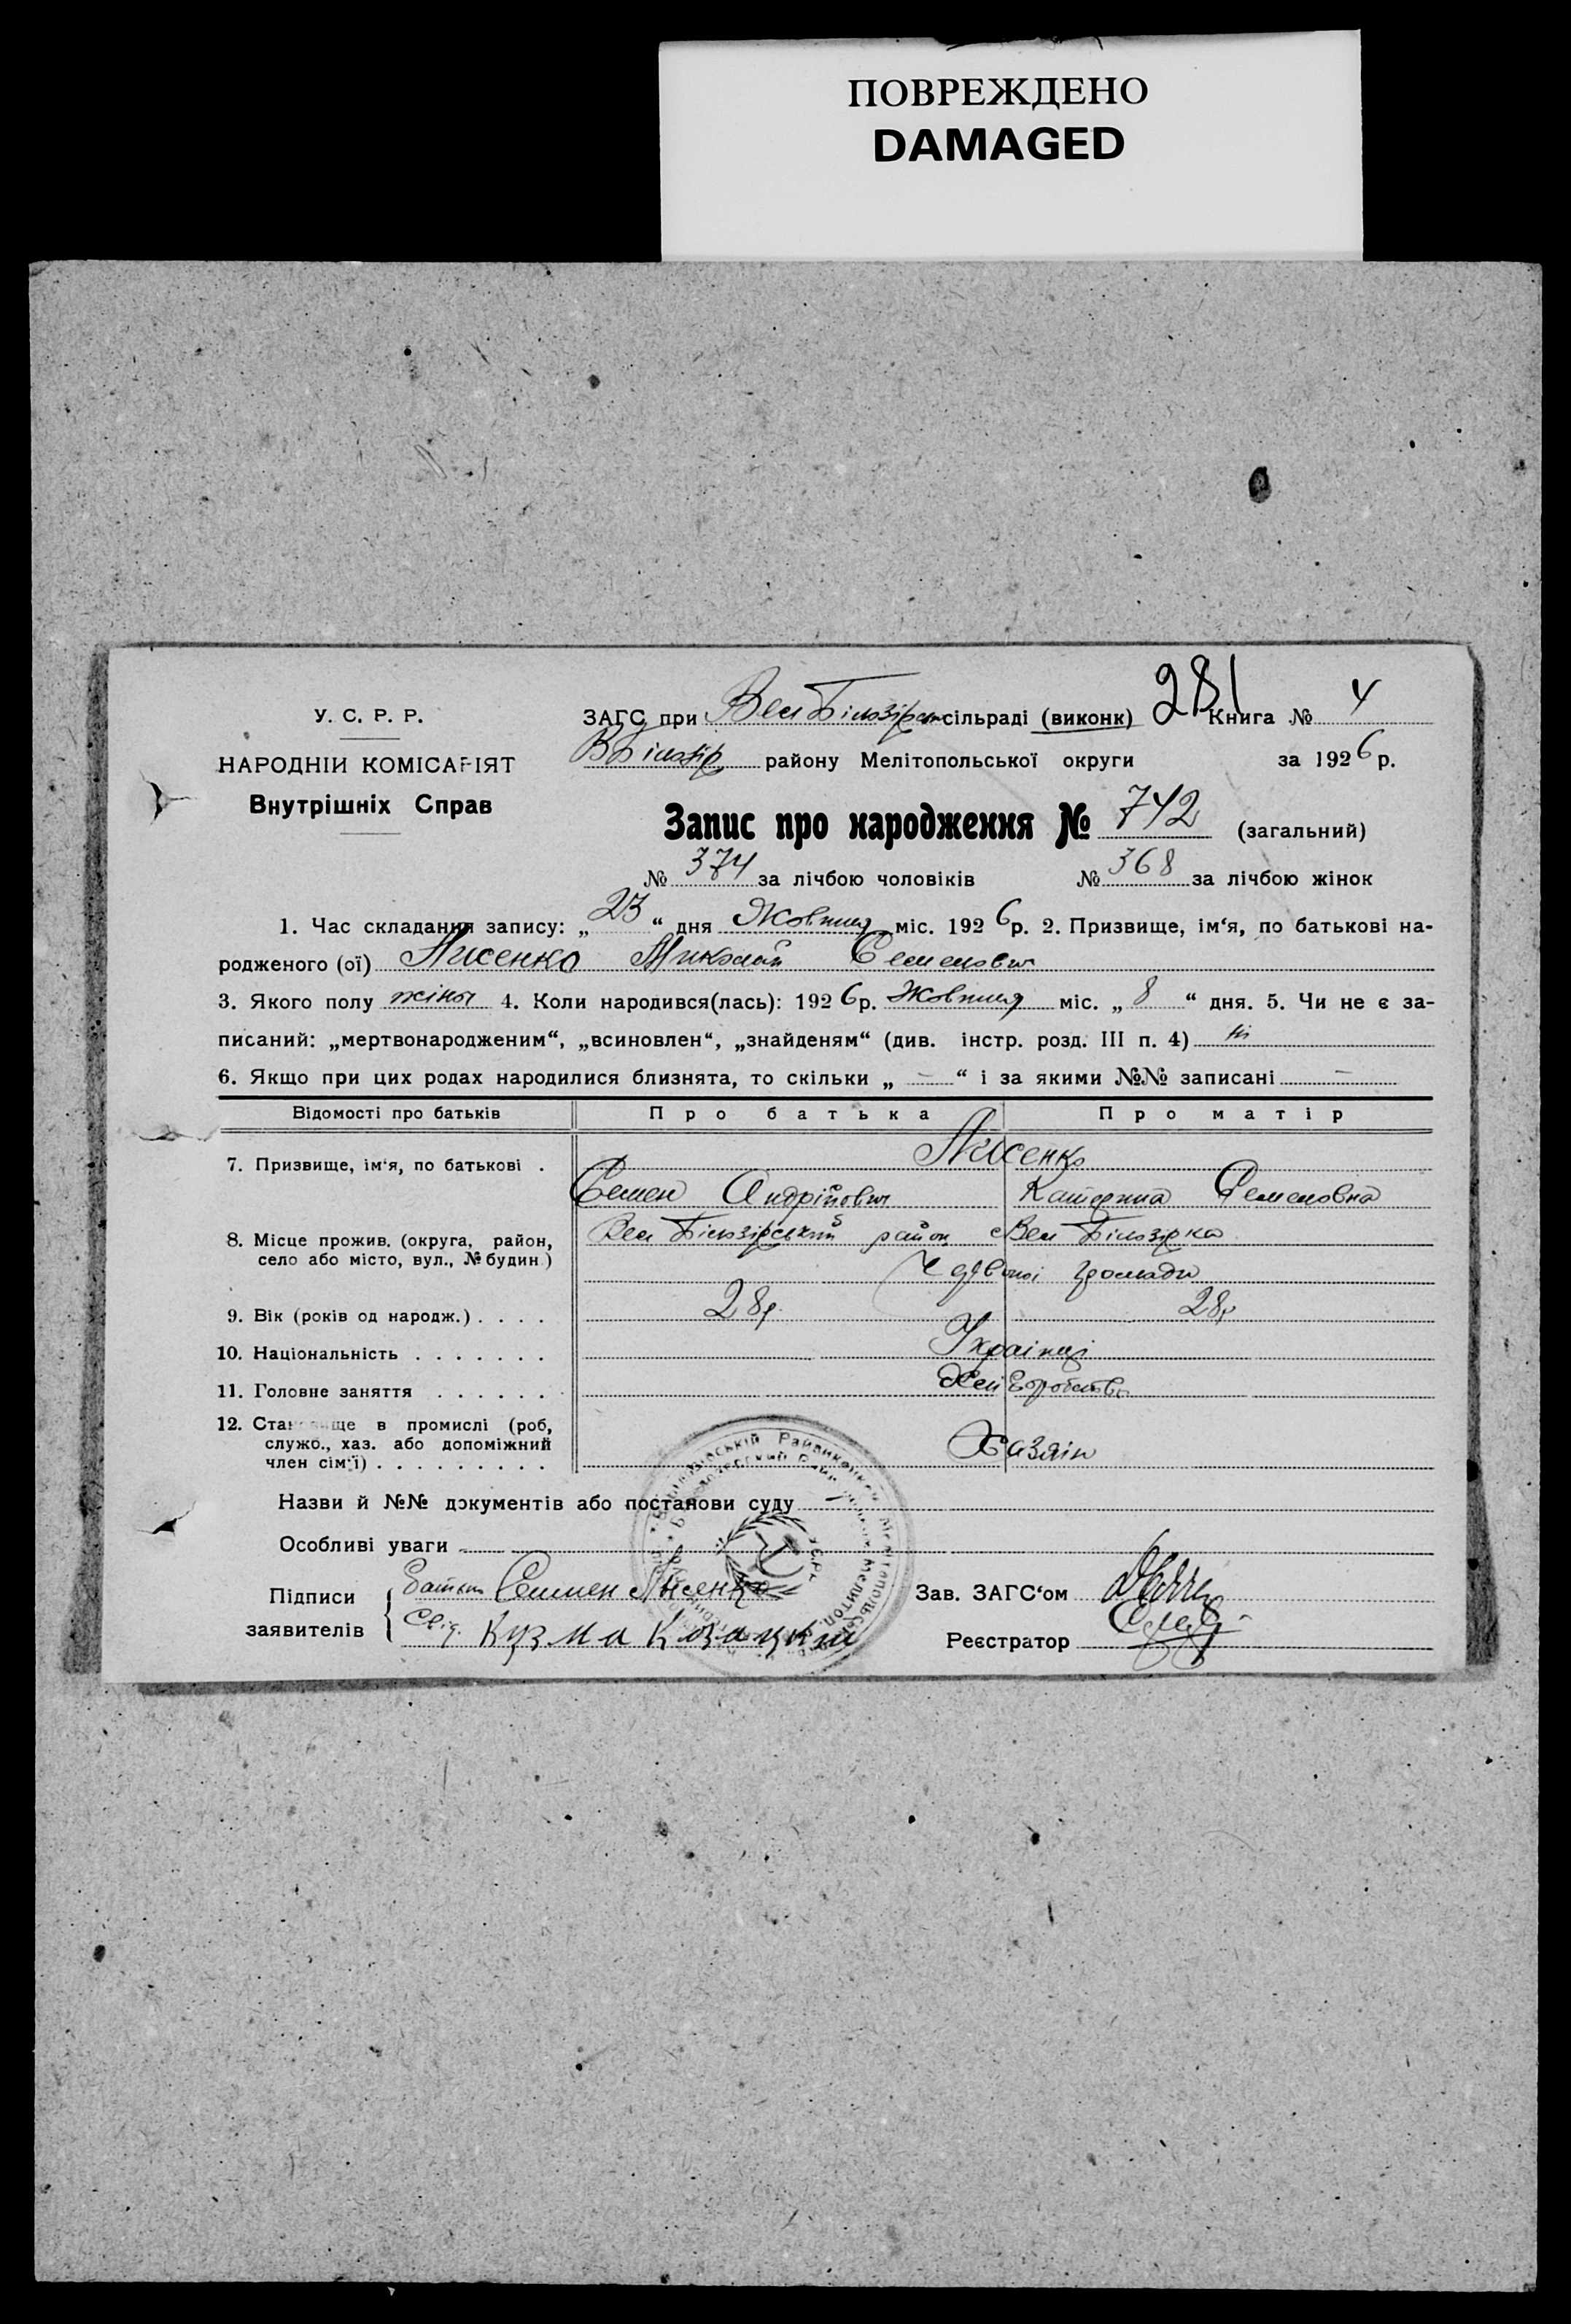 ПОВРЕЖДЕНО
DAMAGED
281
У. С. Р. Р.
ЗАГС при Вел Білозірськ сільраді (виконк) Книга № 4
НАРОДНІЙ КОМІСАРІЯТ
В Білозір району Мелітопольської округи за 1926 р.
Внутрішніх Справ
Запис про народження № 742 (загальний)
№ 374 за лічбою чоловіків № 368 за лічбою жінок
1. Час складання запису: „ 23 “ дня Жовтня міс. 1926 р. 2. Призвище, ім‘я, по батькові на-
родженого (ої) Лисенко Миколай Семенович
3. Якого полу жіноч 4. Коли народився(лась): 1926 р. Жовтня міс. „ 8 “ дня. 5. Чи не є за-
писаний: „мертвонародженим“, „всиновлен“, „знайденям“ (див. інстр. розд. III п. 4) ні
6. Якщо при цих родах народилися близнята, то скільки „ — “ і за якими №№ записані —
Відомості про батьків Про батька Про матір
7. Призвище, ім‘я, по батькові . Лисенко
Семен Андрійович Катерина Семеновна
8. Місце прожив, (округа, район, село або місто, вул., № будин.) Вел Білозірський район с Вел Білозірка
Червоної громади
9. Вік (років од народж.) . . . . 28р. 28р
10. Національність . . . . . . . Українці
11. Головне заняття . . . . . . .
12. Становище в промислі (роб,
служб., хаз. або допоміжний
член сім‘ї) . . . . . . . . . Хазяін
Назви й №№ документів або постанови суду
Особливі уваги
Підписи
заявителів
Батько Семен Лисенко
Свід. Кузма Козацкий
Зав. ЗАГС‘ом
Реєстратор